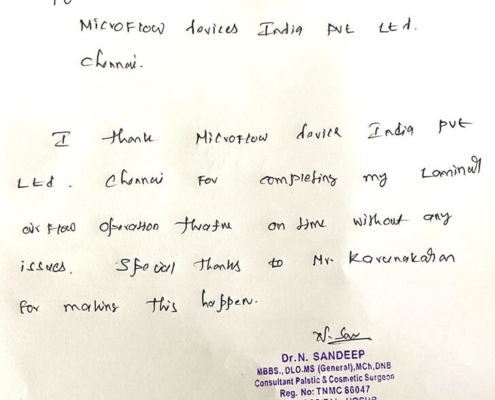 To
Microflow devices India Pvt Ltd.
Chennai.
I thank Microflow device India Pvt
Ltd. Chennai for completing my Laminar
air flow operation theatre on time without any
issues. Special thanks to Mr. Karunakaran
for making this happen.
Dr.N. SANDEEP
MBBS., DLO.MS (General),MCh,DNB
Consultant Palstic & Cosmetic Surgeon
Reg. No: TNMC 86047